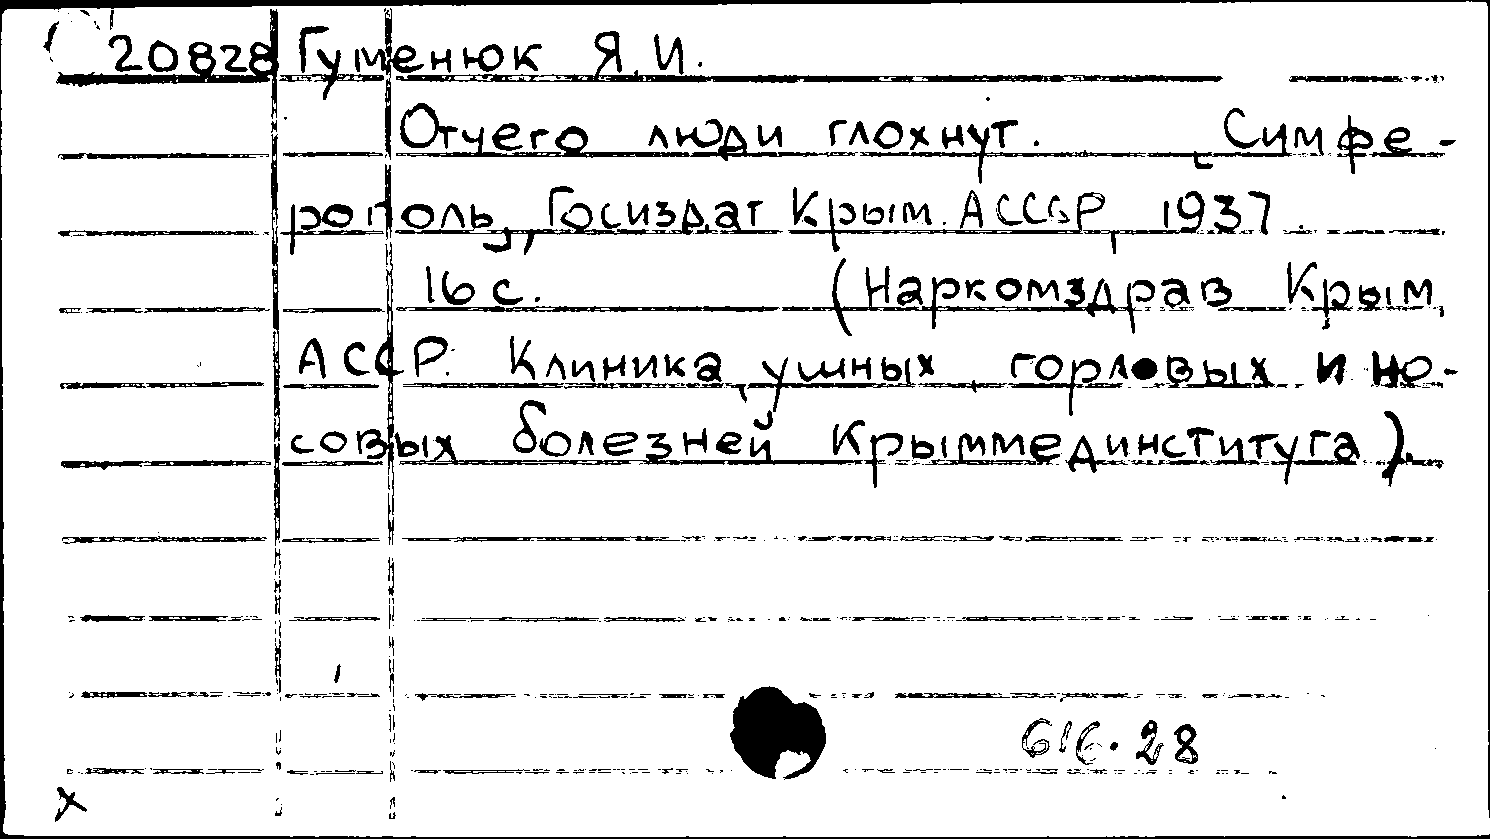 20828 Гуменюк Я.И.
Отчего люди глохнут. Симфе-
рополь, Госиздат Крым. АССР, 1937.
16 с. (Наркомздрав Крым.
АССР. Клиника ушных, горловых и но-
совых болезней Крыммединститута).
616.28
x